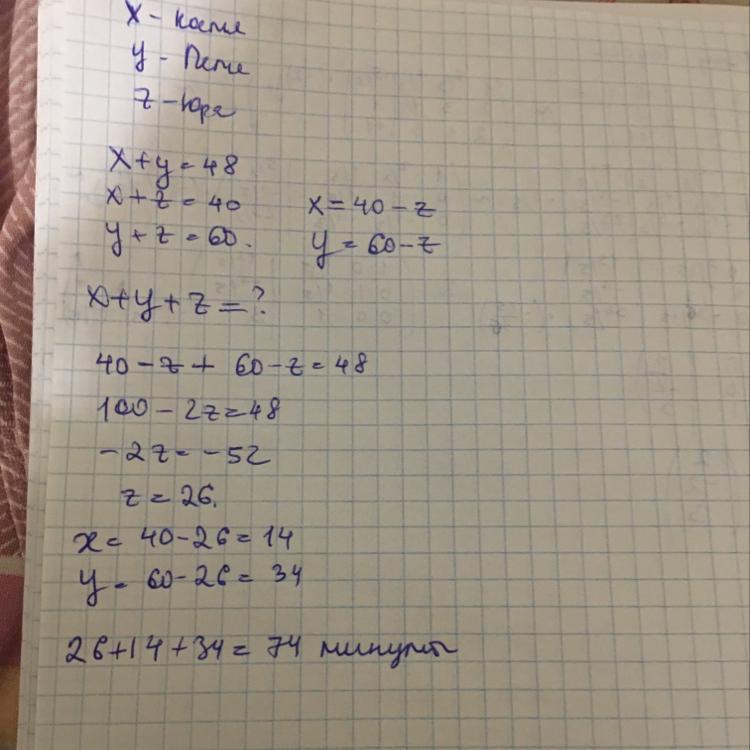 x - Костя
y - Петя
z - Юра
x+y=48
x+z=40 x=40-z
y+z=60. y=60-z
x+y+z=?
40-z+60-z=48
100-2z=48
-2z=-52
z=26.
x=40-26=14
y=60-26=34
26+14+34=74 минуты